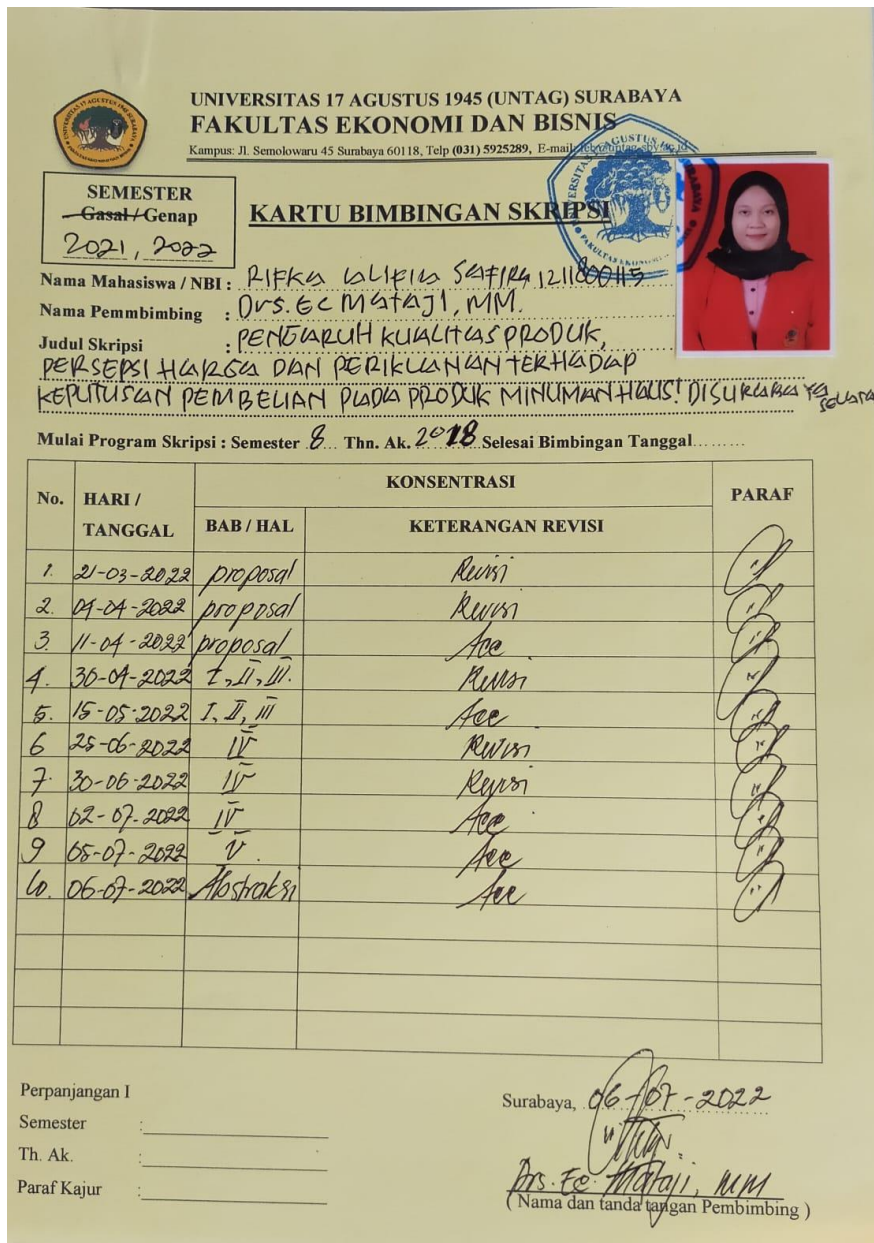 UNIVERSITAS 17 AGUSTUS 1945 (UNTAG) SURABAYA
FAKULTAS EKONOMI DAN BISNIS
Kampus: Jl. Semolowaru 45 Surabaya 60118, Telp (031) 5925289, E-mail: feb@untag-sby.ac.id
SEMESTER
Gasal / Genap
2021, 2022
KARTU BIMBINGAN SKRIPSI
Nama Mahasiswa / NBI : RIFKA ALIFIA SAFIRA 1211800115
Nama Pemmbimbing : Drs. Ec MATAJI, MM.
Judul Skripsi : PENGARUH KUALITAS PRODUK,
PERSEPSI HARGA DAN PERIKLANAN TERHADAP
KEPUTUSAN PEMBELIAN PADA PRODUK MINUMAN HAUS! DI SURABAYA SELATAN
Mulai Program Skripsi : Semester 8 Thn. Ak. 2018 Selesai Bimbingan Tanggal.........
No. HARI / TANGGAL KONSENTRASI PARAF
BAB / HAL KETERANGAN REVISI
1. 21-03-2022 proposal Revisi
2. 04-04-2022 proposal Revisi
3. 11-04-2022 proposal Acc
4. 30-04-2022 I, II, III. Revisi
5. 15-05-2022 I, II, III Acc
6 25-06-2022 IV Revisi
7. 30-06-2022 IV Revisi
8 02-07-2022 IV Acc
9 05-07-2022 V. Acc
10. 06-07-2022 Abstraksi Acc
Perpanjangan I
Semester :
Th. Ak. :
Paraf Kajur :
Surabaya, 06-07-2022
Drs. Ec. Mataji, MM
( Nama dan tanda tangan Pembimbing )